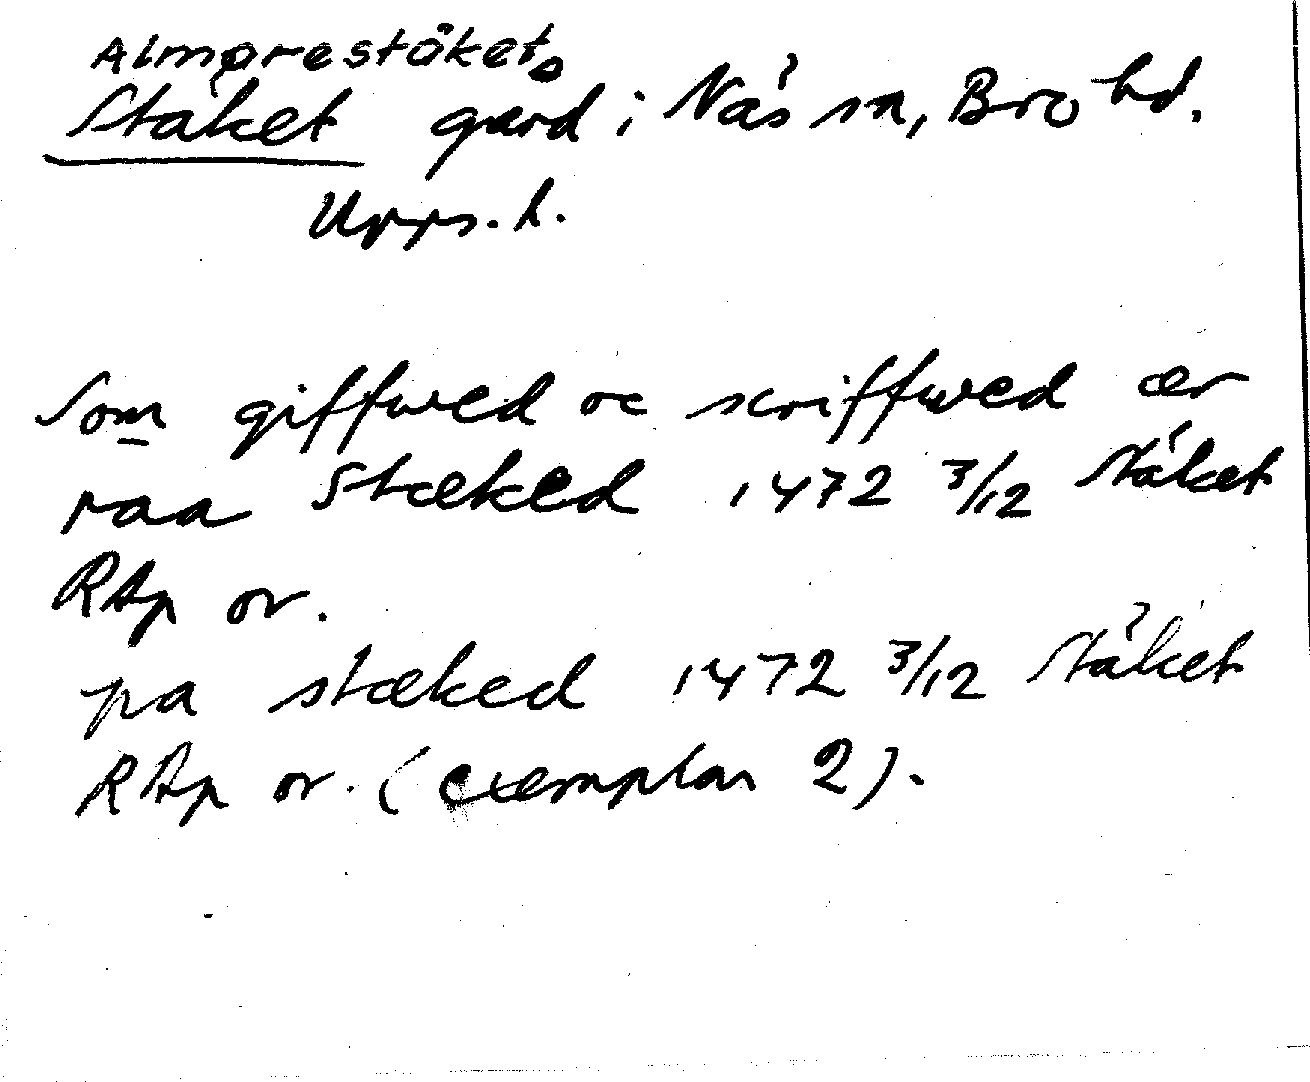 Almarestäket
Stäket gård i Näs sn, Bro hd.
Upps. l.
Som giffwed oc scriffwed ær
paa Stæked 1472 3/12 Stäket
RAp or.
pa stæked 1472 3/12 Stäket
RAp or. (exemplar 2).